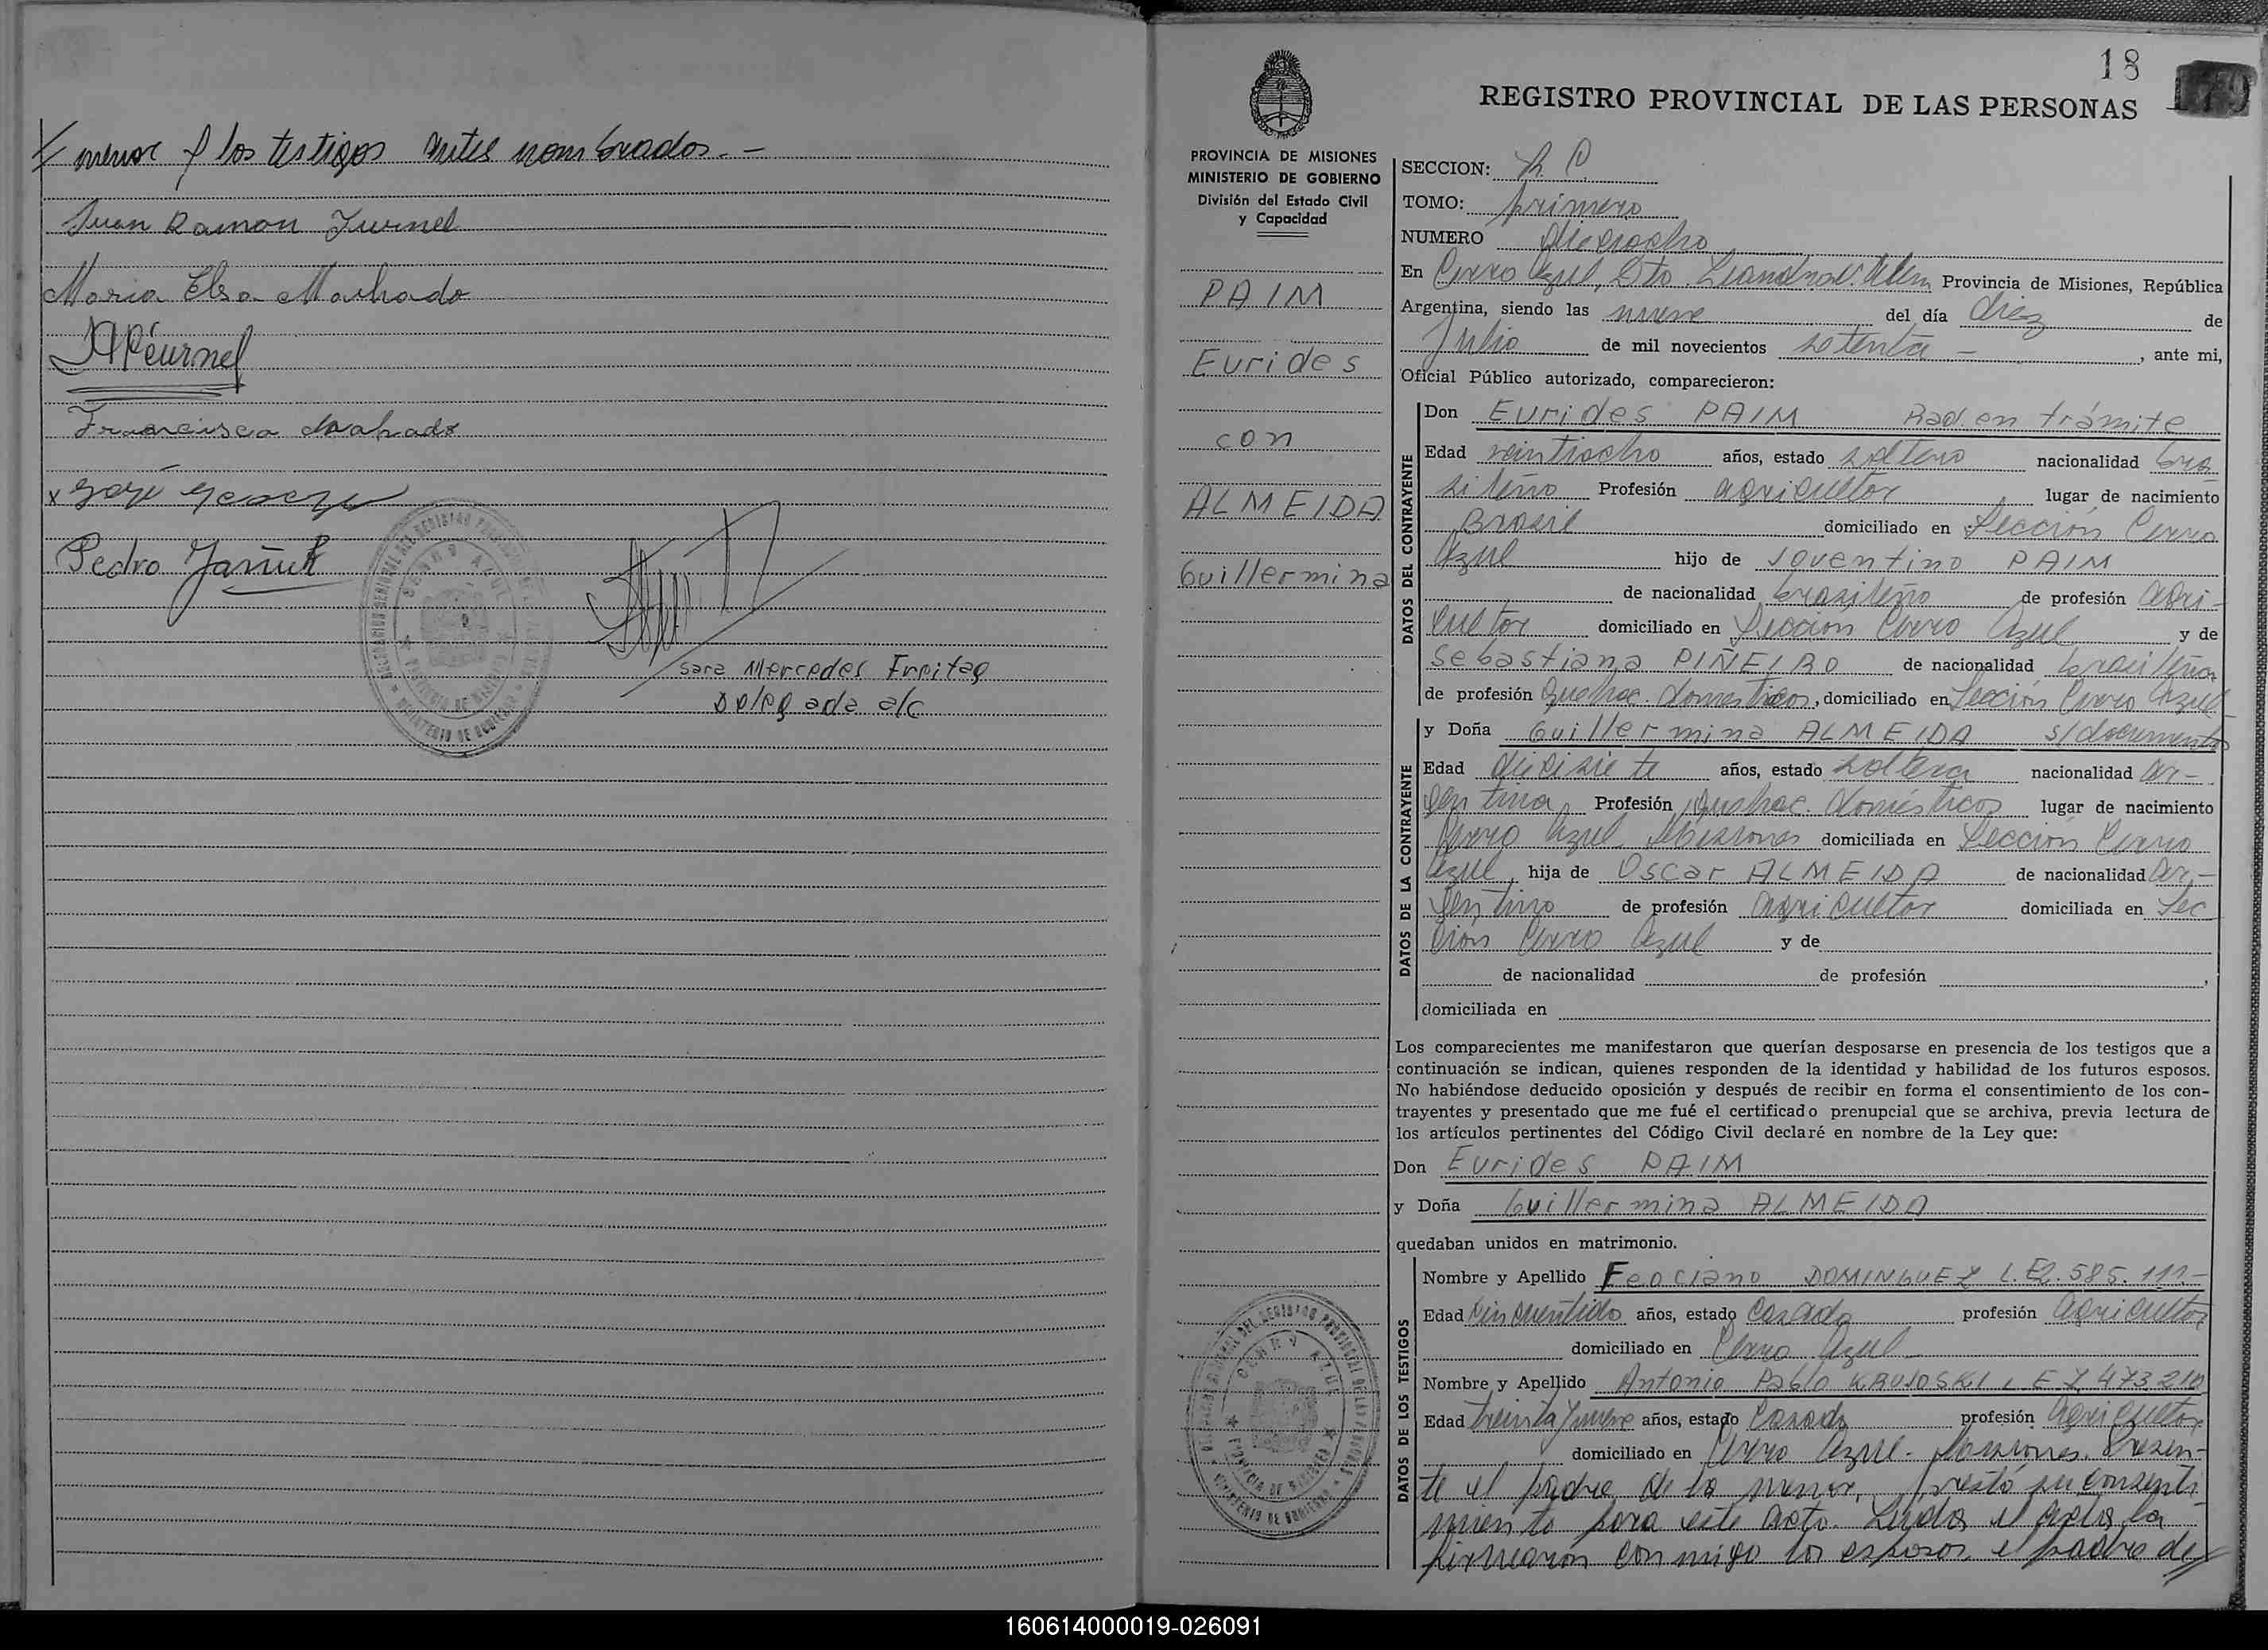 menor y los testigos antes nombrados.-
Juan Ramon
Maria Elsa Machado
Francisca Machado
José
Pedro
Sara Mercedes Freitag
Delegada a/c
18
REGISTRO PROVINCIAL DE LAS PERSONAS
PROVINCIA DE MISIONES
MINISTERIO DE GOBIERNO
División del Estado Civil
y Capacidad
PAIM
Eurides
con
ALMEIDA
Guillermina
SECCION:
TOMO: primero
NUMERO dieciocho
En Cerro Azul, Dto. Leandro N. Alem Provincia de Misiones, República
Argentina, siendo las nueve del día diez de
Julio de mil novecientos setenta - , ante mi,
Oficial Público autorizado, comparecieron:
DATOS DEL CONTRAYENTE
Don Eurides PAIM Rad. en trámite
Edad veintiocho años, estado soltero nacionalidad bra
sileño Profesión agricultor, lugar de nacimiento
Brasil domiciliado en Sección Cerro
Azul hijo de Joventino PAIM
de nacionalidad brasileño de profesión agri-
cultor domiciliado en Sección Cerro Azul y de
Sebastiana PIÑEIRO de nacionalidad brasileña
de profesión quehac. domésticos, domiciliado en Sección Cerro Azul
DATOS DE LA CONTRAYENTE
y Doña Guillermina ALMEIDA s/documento
Edad diecisiete años, estado soltera nacionalidad ar-
gentina Profesión quehac. domésticos lugar de nacimiento
Cerro Azul Misiones domiciliada en Sección Cerro
Azul, hija de Oscar ALMEIDA de nacionalidad ar-
gentino de profesión agricultor domiciliada en Sec
ción Cerro Azul y de
de nacionalidad de profesión ,
domiciliada en
Los comparecientes me manifestaron que querían desposarse en presencia de los testigos que a
continuación se indican, quienes responden de la identidad y habilidad de los futuros esposos.
No habiéndose deducido oposición y después de recibir en forma el consentimiento de los con-
trayentes y presentado que me fué el certificado prenupcial que se archiva, previa lectura de
los artículos pertinentes del Código Civil declaré en nombre de la Ley que:
Don Eurides PAIM
y Doña Guillermina ALMEIDA
quedaban unidos en matrimonio.
DATOS DE LOS TESTIGOS
Nombre y Apellido Feociano DOMINGUEZ L.E2.585.111-
Edad cincuentido años, estado casado profesión agricultor
domiciliado en Cerro Azul
Nombre y Apellido Antonio Pablo KRUJOSKI L E 7.473.210
Edad treinta y nueve años, estado casado profesión agricultor
domiciliado en Cerro Azul - Misiones. Presen-
te el padre de la menor, prestó su consenti
miento para este acto. Leída el acta la
firmaron conmigo los esposos el padre de
160614000019-026091